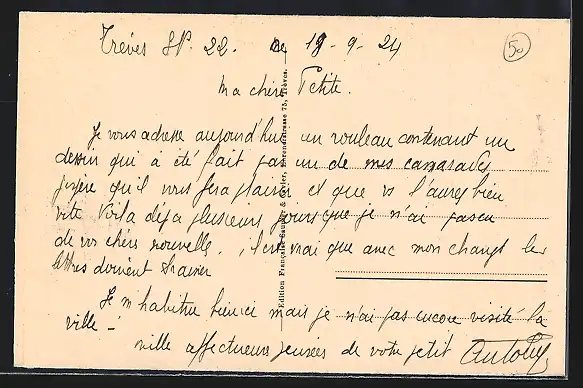 Trèves SP. 22. le 19-9-24
50
Ma chère Petite.
Je vous adresse aujourd'hui un rouleau contenant un
dessin qui a été fait par un de mes camarades
j'espère qu'il vous fera plaisir et que vs l'aurez bien
vite Voila déja plusieurs jours que je n'ai pas eu
de vos chères nouvelle, il est vrai que avec mon changt les
lettres doivent
Je m'habitue bien ici mais je n'ai pas encore visité la
ville -
mille affectueuses pensées de votre petit
Edition Française
75, Trèves.